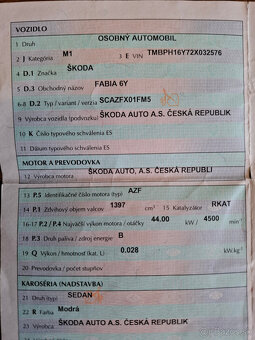 VOZIDLO
1 Druh OSOBNÝ AUTOMOBIL
2 J Kategória M1 3 E VIN TMBPH16Y72X032576
4 D.1 Značka ŠKODA
5 D.3 Obchodný názov FABIA 6Y
6-8 D.2 Typ / variant / verzia SCAZFX01FM5
9 Výrobca vozidla (podvozku) ŠKODA AUTO A.S. ČESKÁ REPUBLIK
10 K Číslo typového schválenia ES
11 Dátum typového schválenia ES
MOTOR A PREVODOVKA
12 Výrobca motora ŠKODA AUTO A.S. ČESKÁ REPUBLI
13 P.5 Identifikačné číslo motora (typ) AZF
14 P.1 Zdvihový objem valcov 1397 cm³ 15 Katalyzátor RKAT
16-17 P.2 / P.4 Najväčší výkon motora / otáčky 44.00 kW / 4500 min⁻¹
18 P.3 Druh paliva / zdroj energie B
19 Q Výkon / hmotnosť (kat. L) 0.028 kW.kg⁻¹
20 Prevodovka / počet stupňov
KAROSÉRIA (NADSTAVBA)
21 Druh (typ) SEDAN
22 R Farba Modrá
23 Výrobca ŠKODA AUTO A.S. ČESKÁ REPUBLIK